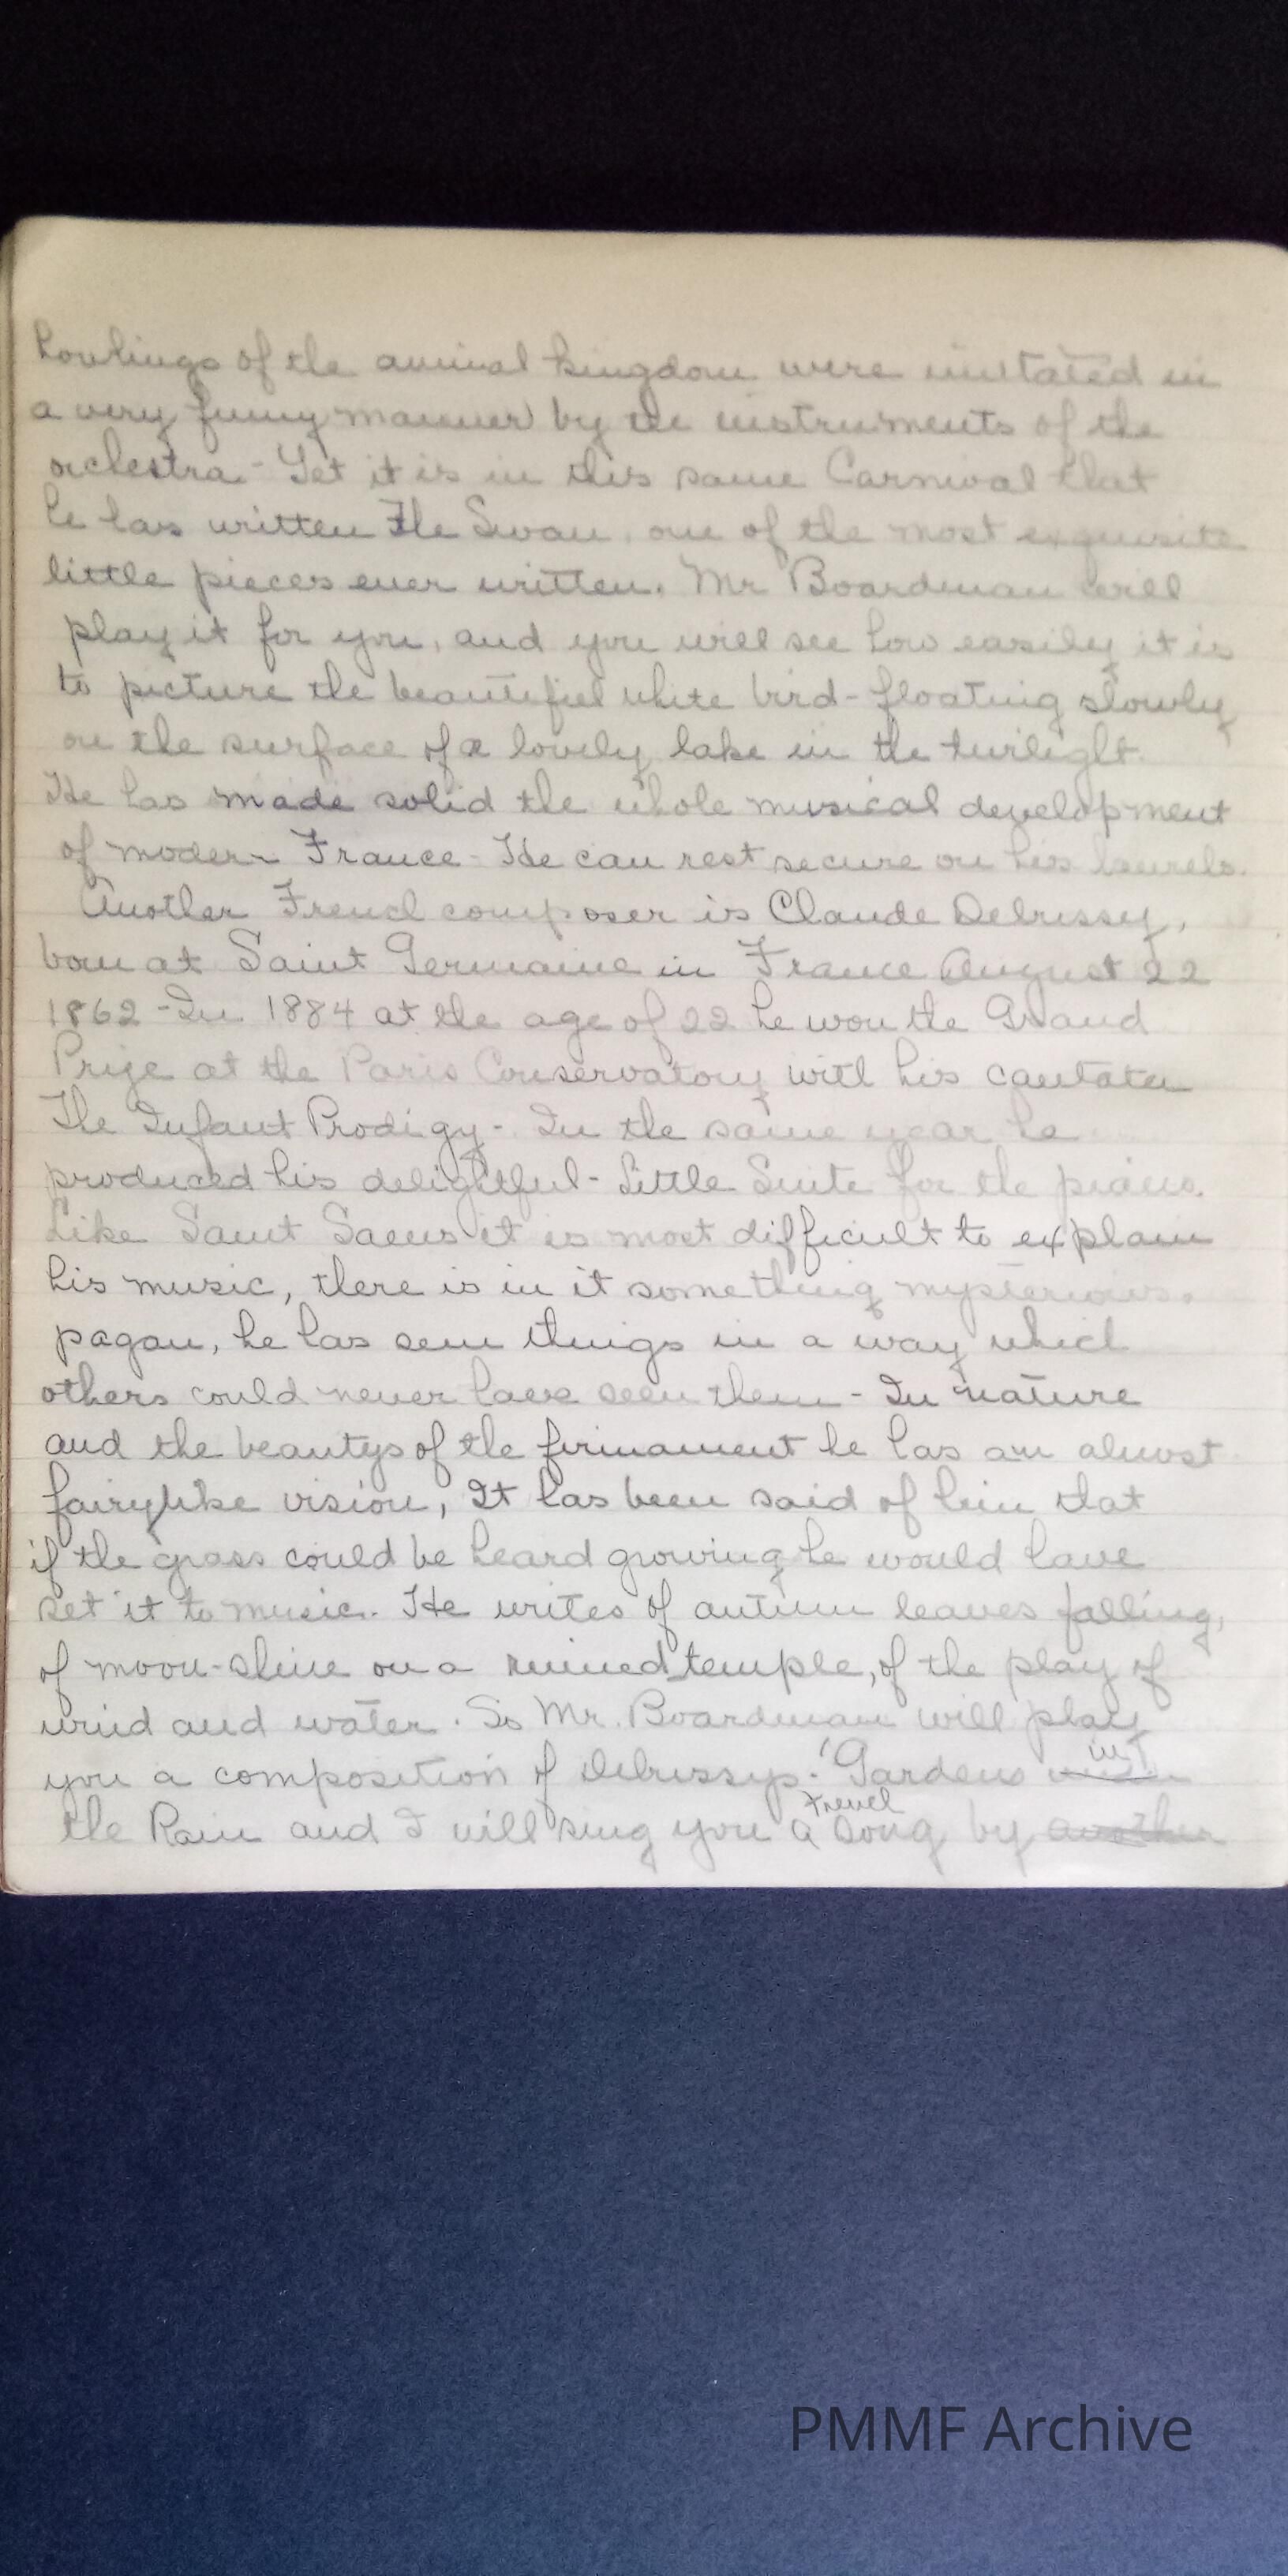 howlings of the animal kingdom were imitated in
a very funny manner by the instruments of the
orchestra - Yet it is in this same Carnival that
he has written The Swan, one of the most exquisite
little pieces ever written. Mr Boardman will
play it for you, and you will see how easily it is
to picture the beautiful white bird - floating slowly
on the surface of a lovely lake in the twilight.
He has made solid the whole musical development
of modern France - He can rest secure on his laurels.
Another French composer is Claude Debussy,
born at Saint Germaine in France August 22
1862 - In 1884 at the age of 22 he won the Grand
Prize at the Paris Conservatory with his cantata
The Infant Prodigy - In the same year he
produced his delightful - Little Suite for the piano.
Like Saint Saens it is most difficult to explain
his music, there is in it something mysterious,
pagan, he has seen things in a way which
others could never have seen them - In nature
and the beautys of the firmament he has an almost
fairylike vision, It has been said of him that
if the grass could be heard growing he would have
set it to music. He writes of autumn leaves falling,
of moon-shine on a ruined temple, of the play of
wind and water. So Mr. Boardman will play
you a composition of Debussys. 'Gardens in
the Rain and I will sing you a French song by another
PMMF Archive